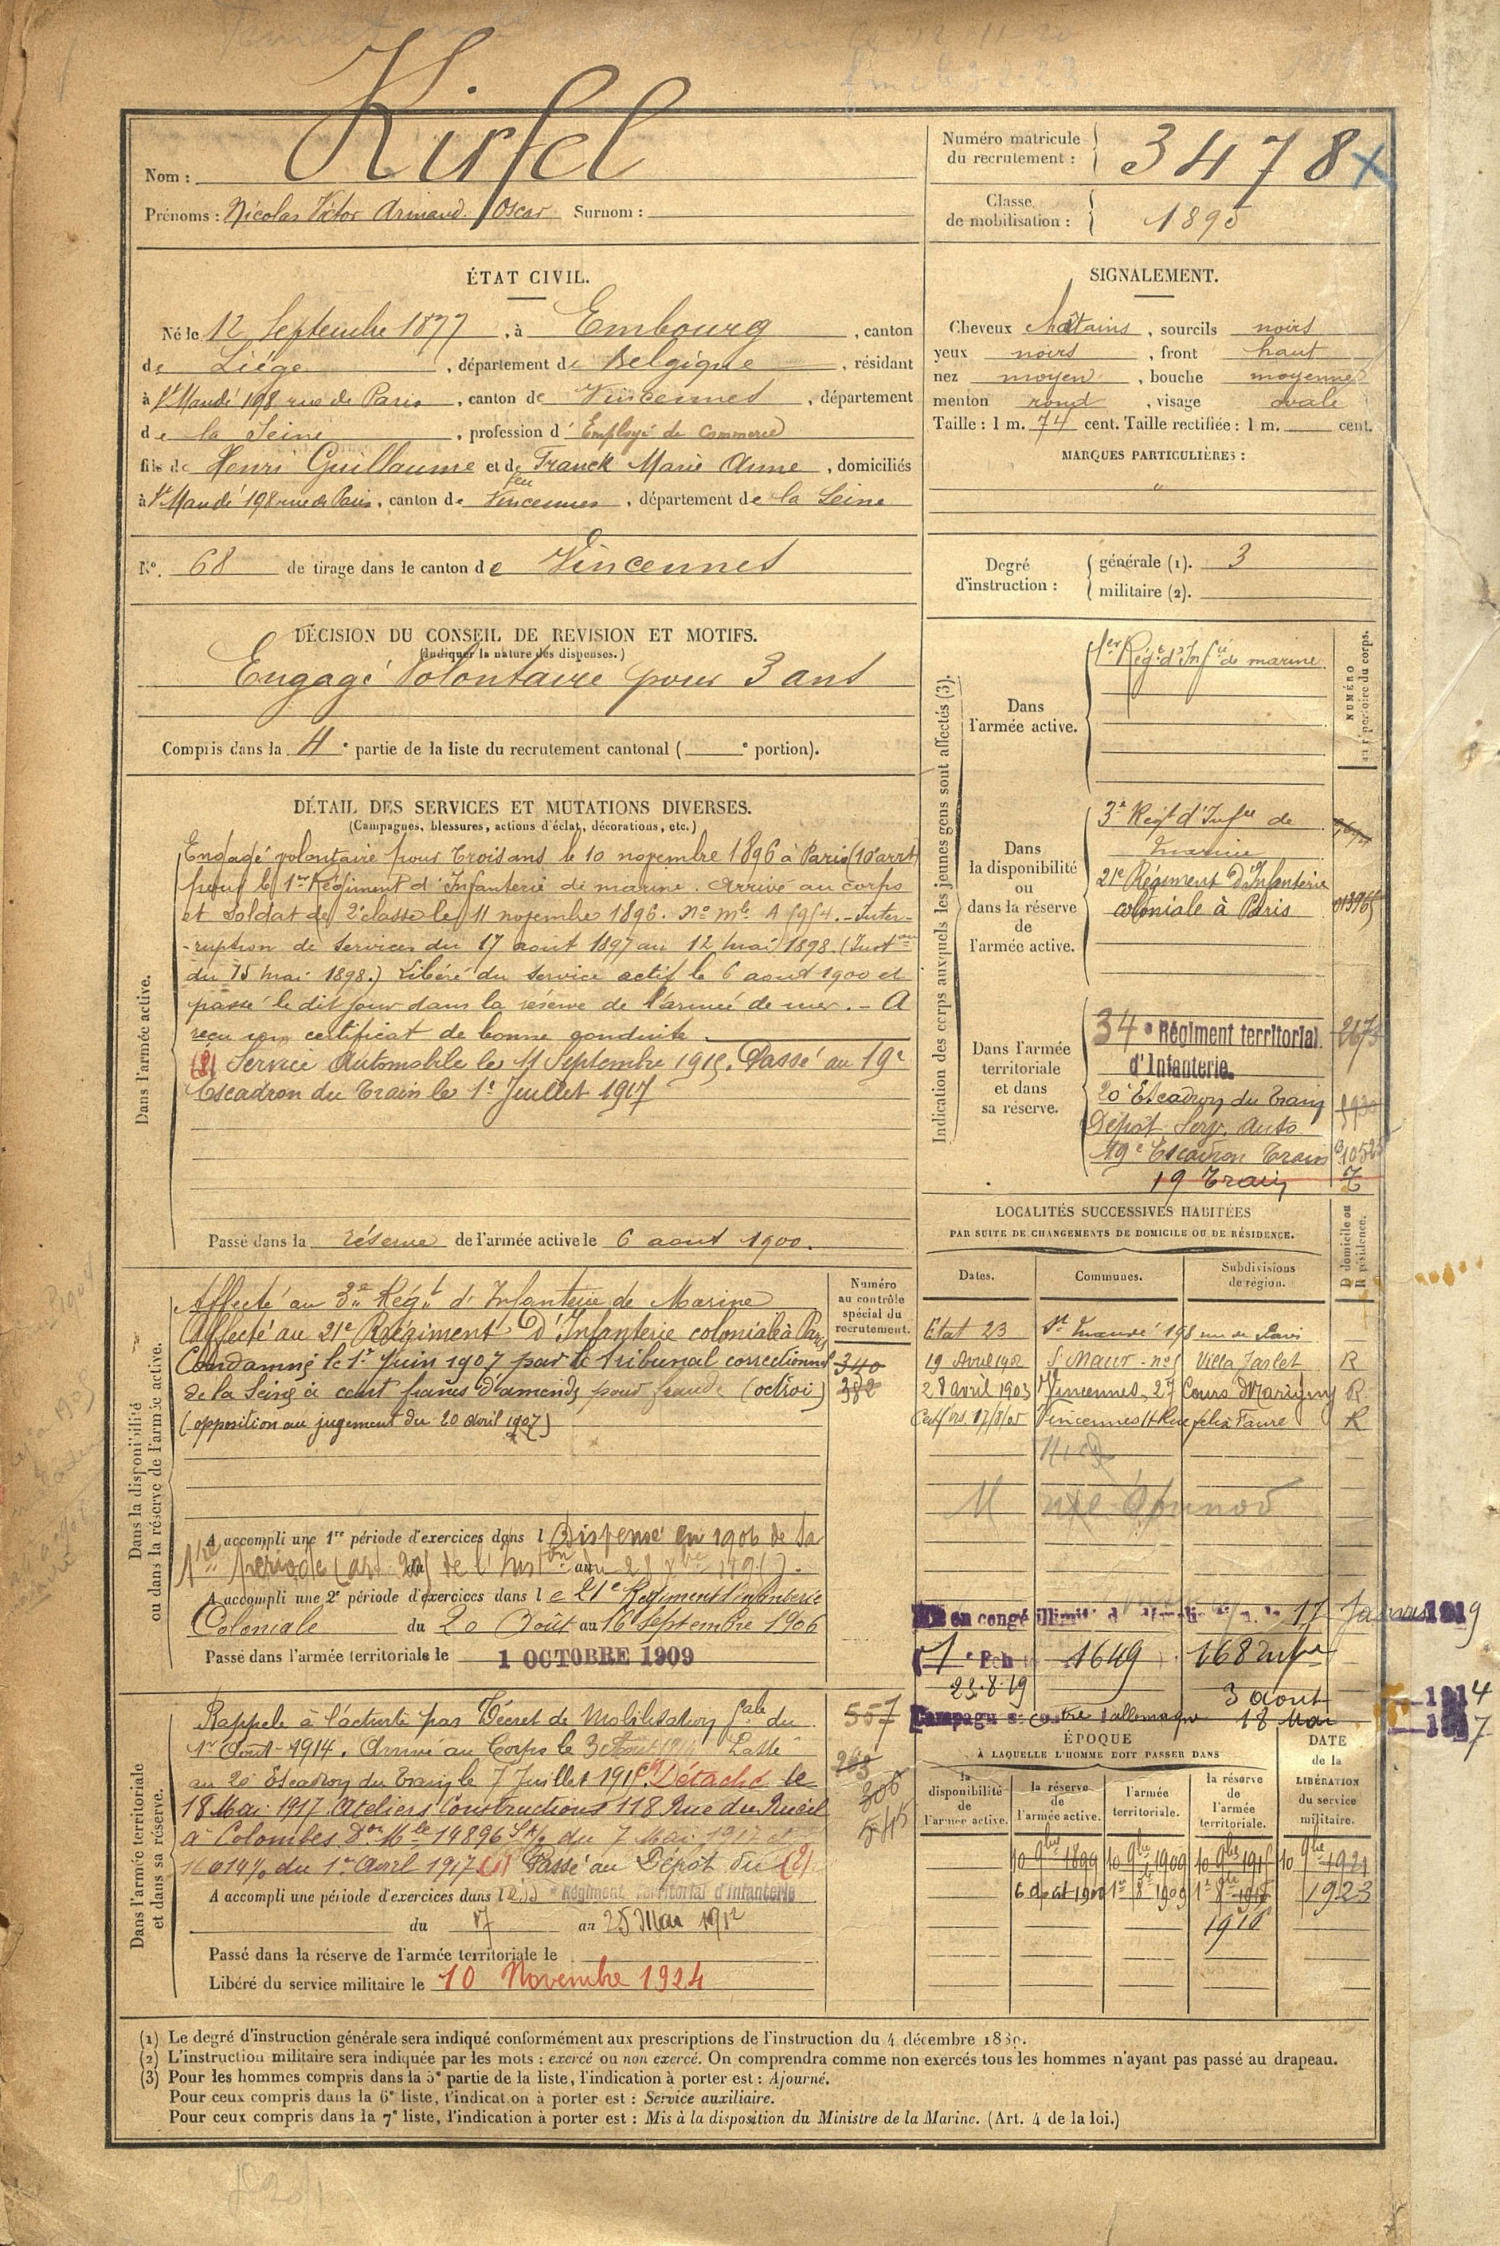 Kirfel
Nom :
Prénoms : Nicolas Victor Armand Oscar Surnom :
Numéro matricule du recrutement : 3478
Classe de mobilisation : 1895
ÉTAT CIVIL.
Né le 12 Septembre 1877, à Embourg, canton
de Liége, département de Belgique, résidant
à St Mandé 198 rue de Paris, canton de Vincennes, département
de la Seine, profession d' Employé de Commerce
fils de Henri Guillaume et de Franck Marie Anne, domiciliés
feu
à St Mandé 198 rue de Paris, canton de Vincennes, département de la Seine
N°. 68 de tirage dans le canton de Vincennes
SIGNALEMENT.
Cheveux châtains, sourcils noirs
yeux noirs, front haut
nez moyen, bouche moyenne
menton rond, visage ovale
Taille : 1 m. 74 cent. Taille rectifiée : 1 m. cent.
MARQUES PARTICULIÈRES :
"
Degré d'instruction : générale (1). 3
militaire (2).
DÉCISION DU CONSEIL DE REVISION ET MOTIFS.
(Indiquer la nature des dispenses.)
Engagé Volontaire pour 3 ans
Compris dans la 4e partie de la liste du recrutement cantonal ( e portion).
DÉTAIL DES SERVICES ET MUTATIONS DIVERSES.
(Campagnes, blessures, actions d'éclat, décorations, etc.)
Dans l'armée active.
Engagé volontaire pour trois ans le 10 novembre 1896 à Paris (10e arrt)
pour le 1er Régiment d'Infanterie de marine. Arrivé au corps
et Soldat de 2e classe le 11 novembre 1896. No mle A 5954. - Inter-
-ruption de services du 17 aout 1897 au 12 mai 1898. (Inston
du 15 mai 1898.) Libéré du service actif le 6 aout 1900 et
passé le dit jour dans la réserve de l'armée de mer. - A
reçu son certificat de bonne conduite.
(2) Service Automobile le 11 Septembre 1915. Passé au 19e
Escadron du Train le 1er Juillet 1917
Passé dans la réserve de l'armée active le 6 aout 1900.
Indication des corps auxquels les jeunes gens sont affectés (3).
NUMÉRO au répertoire du corps.
Dans l'armée active.
1er Régt d'Infie de marine
Dans la disponibilité ou dans la réserve de l'armée active.
3e Régt d'Infie de
marine
21e Régiment d'Infanterie
coloniale à Paris
Dans l'armée territoriale et dans sa réserve.
34e Régiment territorial
d'Infanterie.
20e Escadron du Train
Dépôt Serv. Auto
19e Escadron Train
19 Train
LOCALITÉS SUCCESSIVES HABITÉES
PAR SUITE DE CHANGEMENTS DE DOMICILE OU DE RÉSIDENCE.
Dates. Communes. Subdivisions de région. D domicile ou R résidence.
Etat 23 St Mandé 198 rue de Paris
19 Avril 1902 St Maur - no 1 Villa Jaslet R
28 avril 1903 Vincennes, 27 Cours Marigny R
17/8/05 Vincennes 14 Rue felix Faure R
Dans la disponibilité ou dans la réserve de l'armée active.
Numéro au contrôle spécial du recrutement.
Affecté au 3e Régt d'Infanterie de Marine
Affecté au 21e Régiment d'Infanterie coloniale à Paris
Condamné le 1er Juin 1907 par le Tribunal correctionnel
de la Seine à cent francs d'amende pour fraude (octroi)
(opposition au jugement du 20 avril 1907)
340
382
A accompli une 1re période d'exercices dans l Dispensé en 1906 de la
1re période (art. 20 de l'Inston du 28 Xbre 189 ).
A accompli une 2e période d'exercices dans le 21e Régiment d'infanterie
Coloniale du 20 Août au 16 Septembre 1906
Passé dans l'armée territoriale le 1 OCTOBRE 1909
en congé illimité le 17 Janvier 1919
1e Ech 1649 168
23.8.19
Campagne contre l'allemagne 3 aout 1914
18 Mai 1917
Dans l'armée territoriale et dans sa réserve.
Rappelé à l'activité par Décret de Mobilisation Gale du
1er Août 1914. Arrivé au Corps le 3 Août 1914 Passé
au 20e Escadron du Train le 7 Juillet 1915. Détaché le
18 Mai 1917 Ateliers Constructions 118 Rue du Rueil
à Colombes Don Mle 14896 du 7 Mai 1917 et
du 1er Avril 1917 (1) Passé au Dépôt du (2)
557
263
306
545
A accompli une période d'exercices dans l Régiment Territorial d'Infanterie
du 17 au 25 Mai 1912
Passé dans la réserve de l'armée territoriale le
Libéré du service militaire le 10 Novembre 1924
ÉPOQUE
À LAQUELLE L'HOMME DOIT PASSER DANS
la disponibilité de l'armée active. la réserve de l'armée active. l'armée territoriale. la réserve de l'armée territoriale. DATE de la LIBÉRATION du service militaire.
10 9bre 1899 10 9bre 1909 10 9bre 1915 10 9bre 1921
6 aout 1900 1er 8bre 1909 1er 8bre 1915 1923
1916
(1) Le degré d'instruction générale sera indiqué conformément aux prescriptions de l'instruction du 4 décembre 1889.
(2) L'instruction militaire sera indiquée par les mots : exercé ou non exercé. On comprendra comme non exercés tous les hommes n'ayant pas passé au drapeau.
(3) Pour les hommes compris dans la 5e partie de la liste, l'indication à porter est : Ajourné.
Pour ceux compris dans la 6e liste, l'indication à porter est : Service auxiliaire.
Pour ceux compris dans la 7e liste, l'indication à porter est : Mis à la disposition du Ministre de la Marine. (Art. 4 de la loi.)